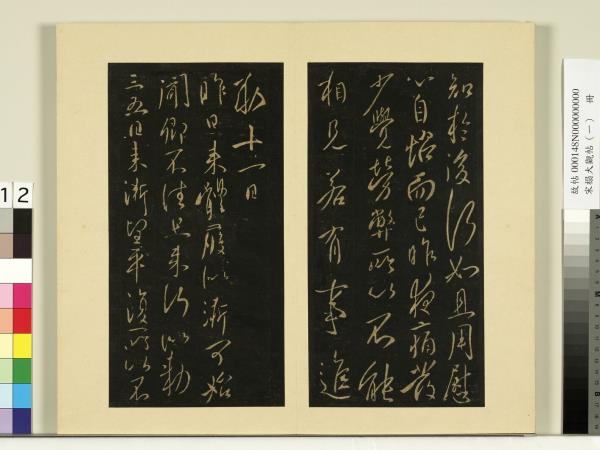 知於後行如且用慰
心自怡而已昨夜痛發
少覺勞弊所以不能
相見若有事進
敕十一日
昨日來體履似漸可始
聞卿不佳 來行以勅
三五日來漸望平復所以不
故帖 000148N000000000
宋搨大觀帖（一） 冊
1 2